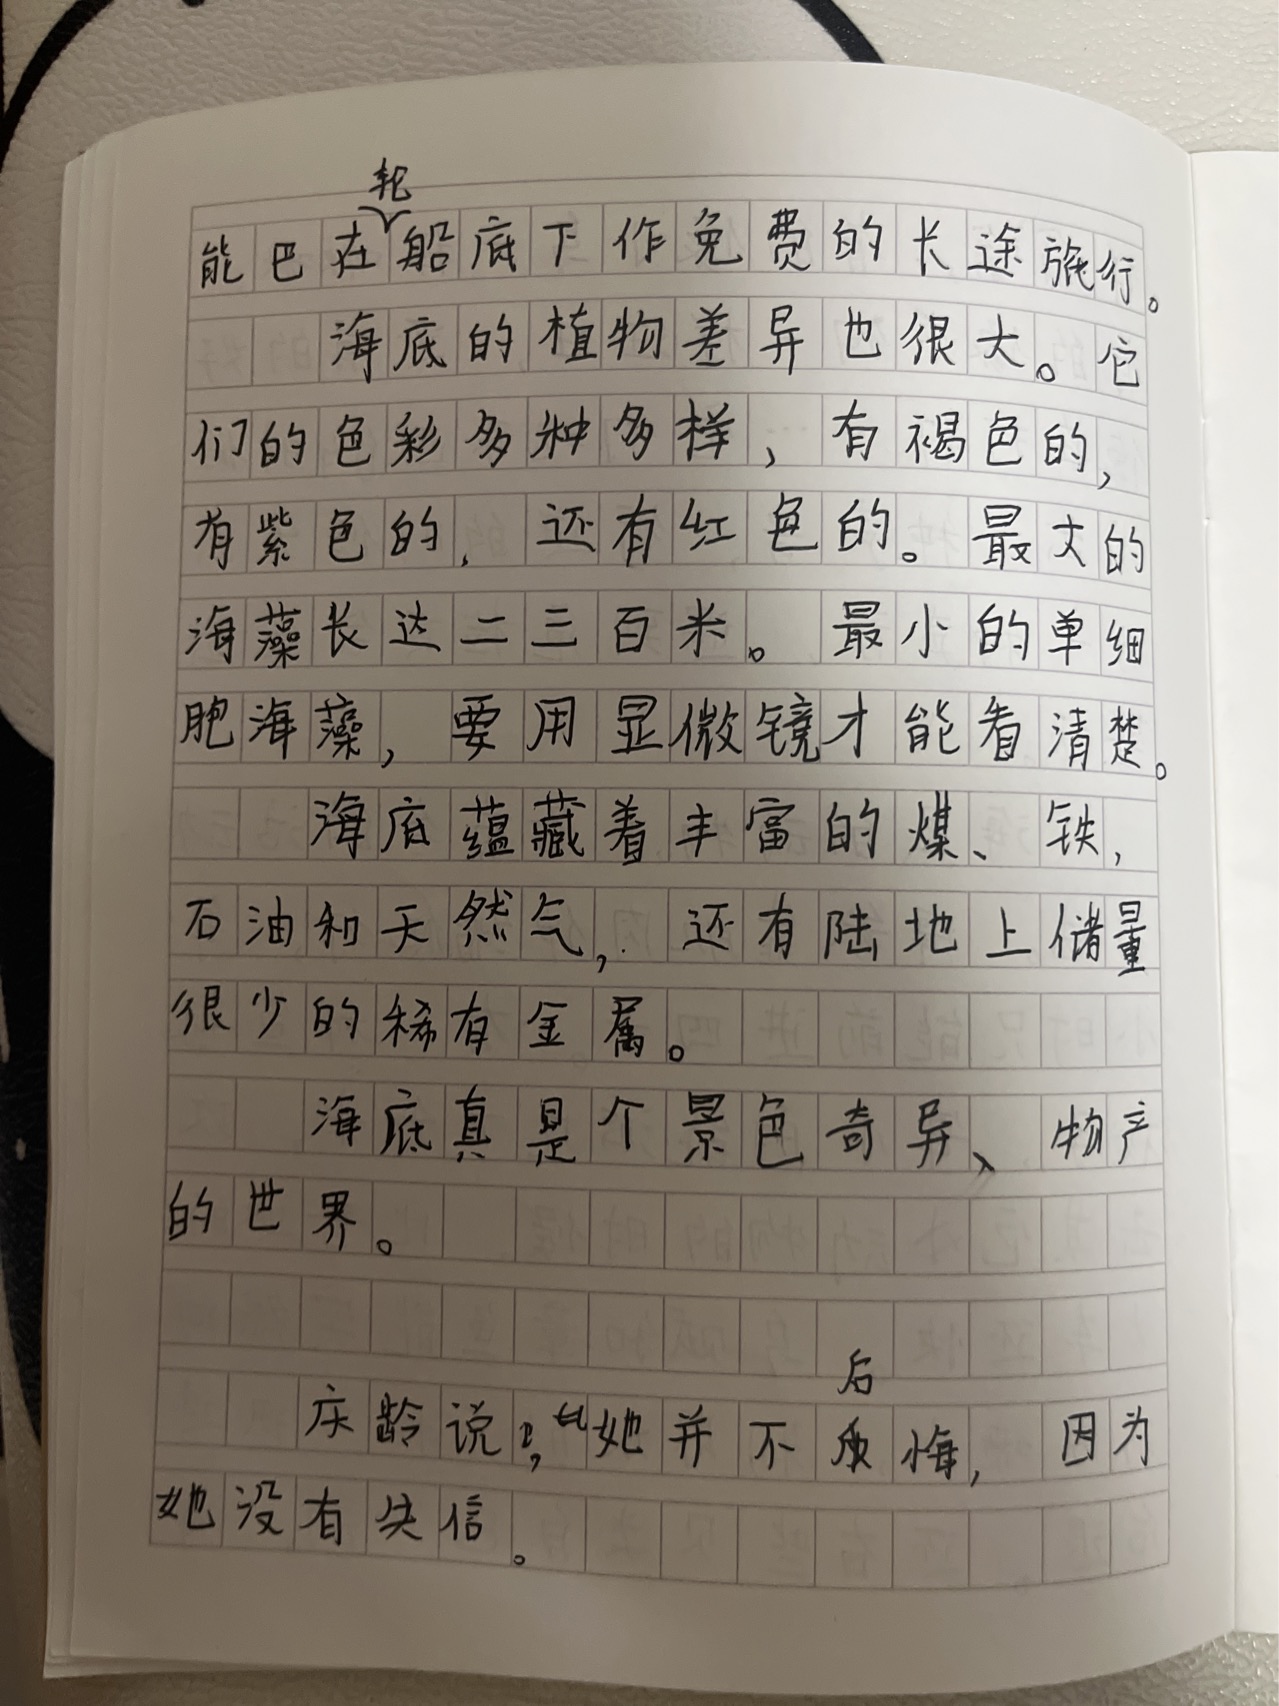 轮
能巴在船底下作免费的长途旅行。
海底的植物差异也很大。它
们的色彩多种多样，有褐色的，
有紫色的，还有红色的。最大的
海藻长达二三百米。最小的单细
胞海藻，要用显微镜才能看清楚。
海底蕴藏着丰富的煤、铁，
石油和天然气，还有陆地上储量
很少的稀有金属。
海底真是个景色奇异、物产
的世界。
后
庆龄说，她并不悔，因为
她没有失信。